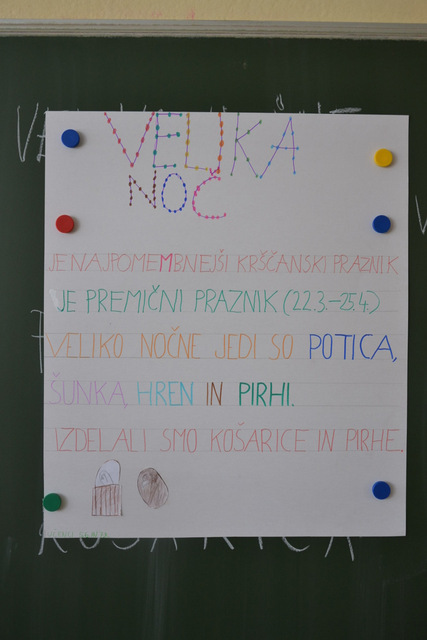 VELIKA
NOČ
JE NAJPOMEMBNEJŠI KRŠČANSKI PRAZNIK
JE PREMIČNI PRAZNIK (22.3.-25.4)
VELIKO NOČNE JEDI SO POTICA,
ŠUNKA, HREN IN PIRHI.
IZDELALI SMO KOŠARICE IN PIRHE.